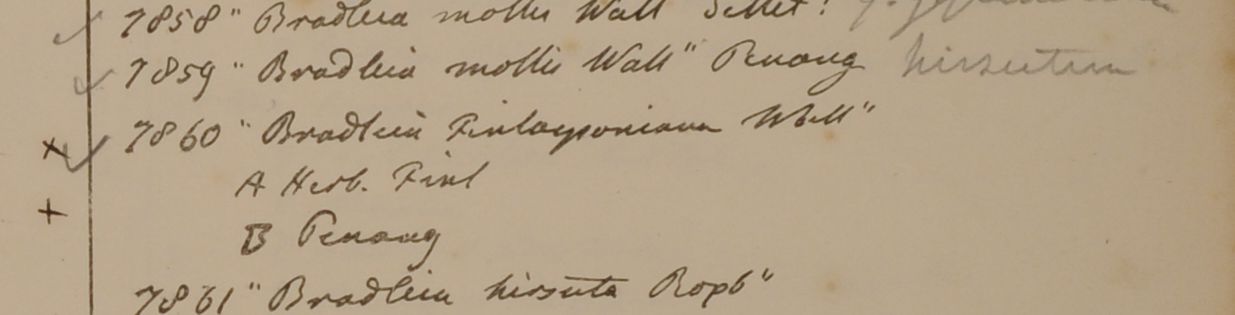 7858 " Bradleia mollis Wall Sillet!
7859 " Bradleia mollis Wall" Penang hirsutum
7860 " Bradleia Finlaysoniana Wall"
A Herb. Finl
B Penang
7861 " Bradleia hirsuta Roxb"